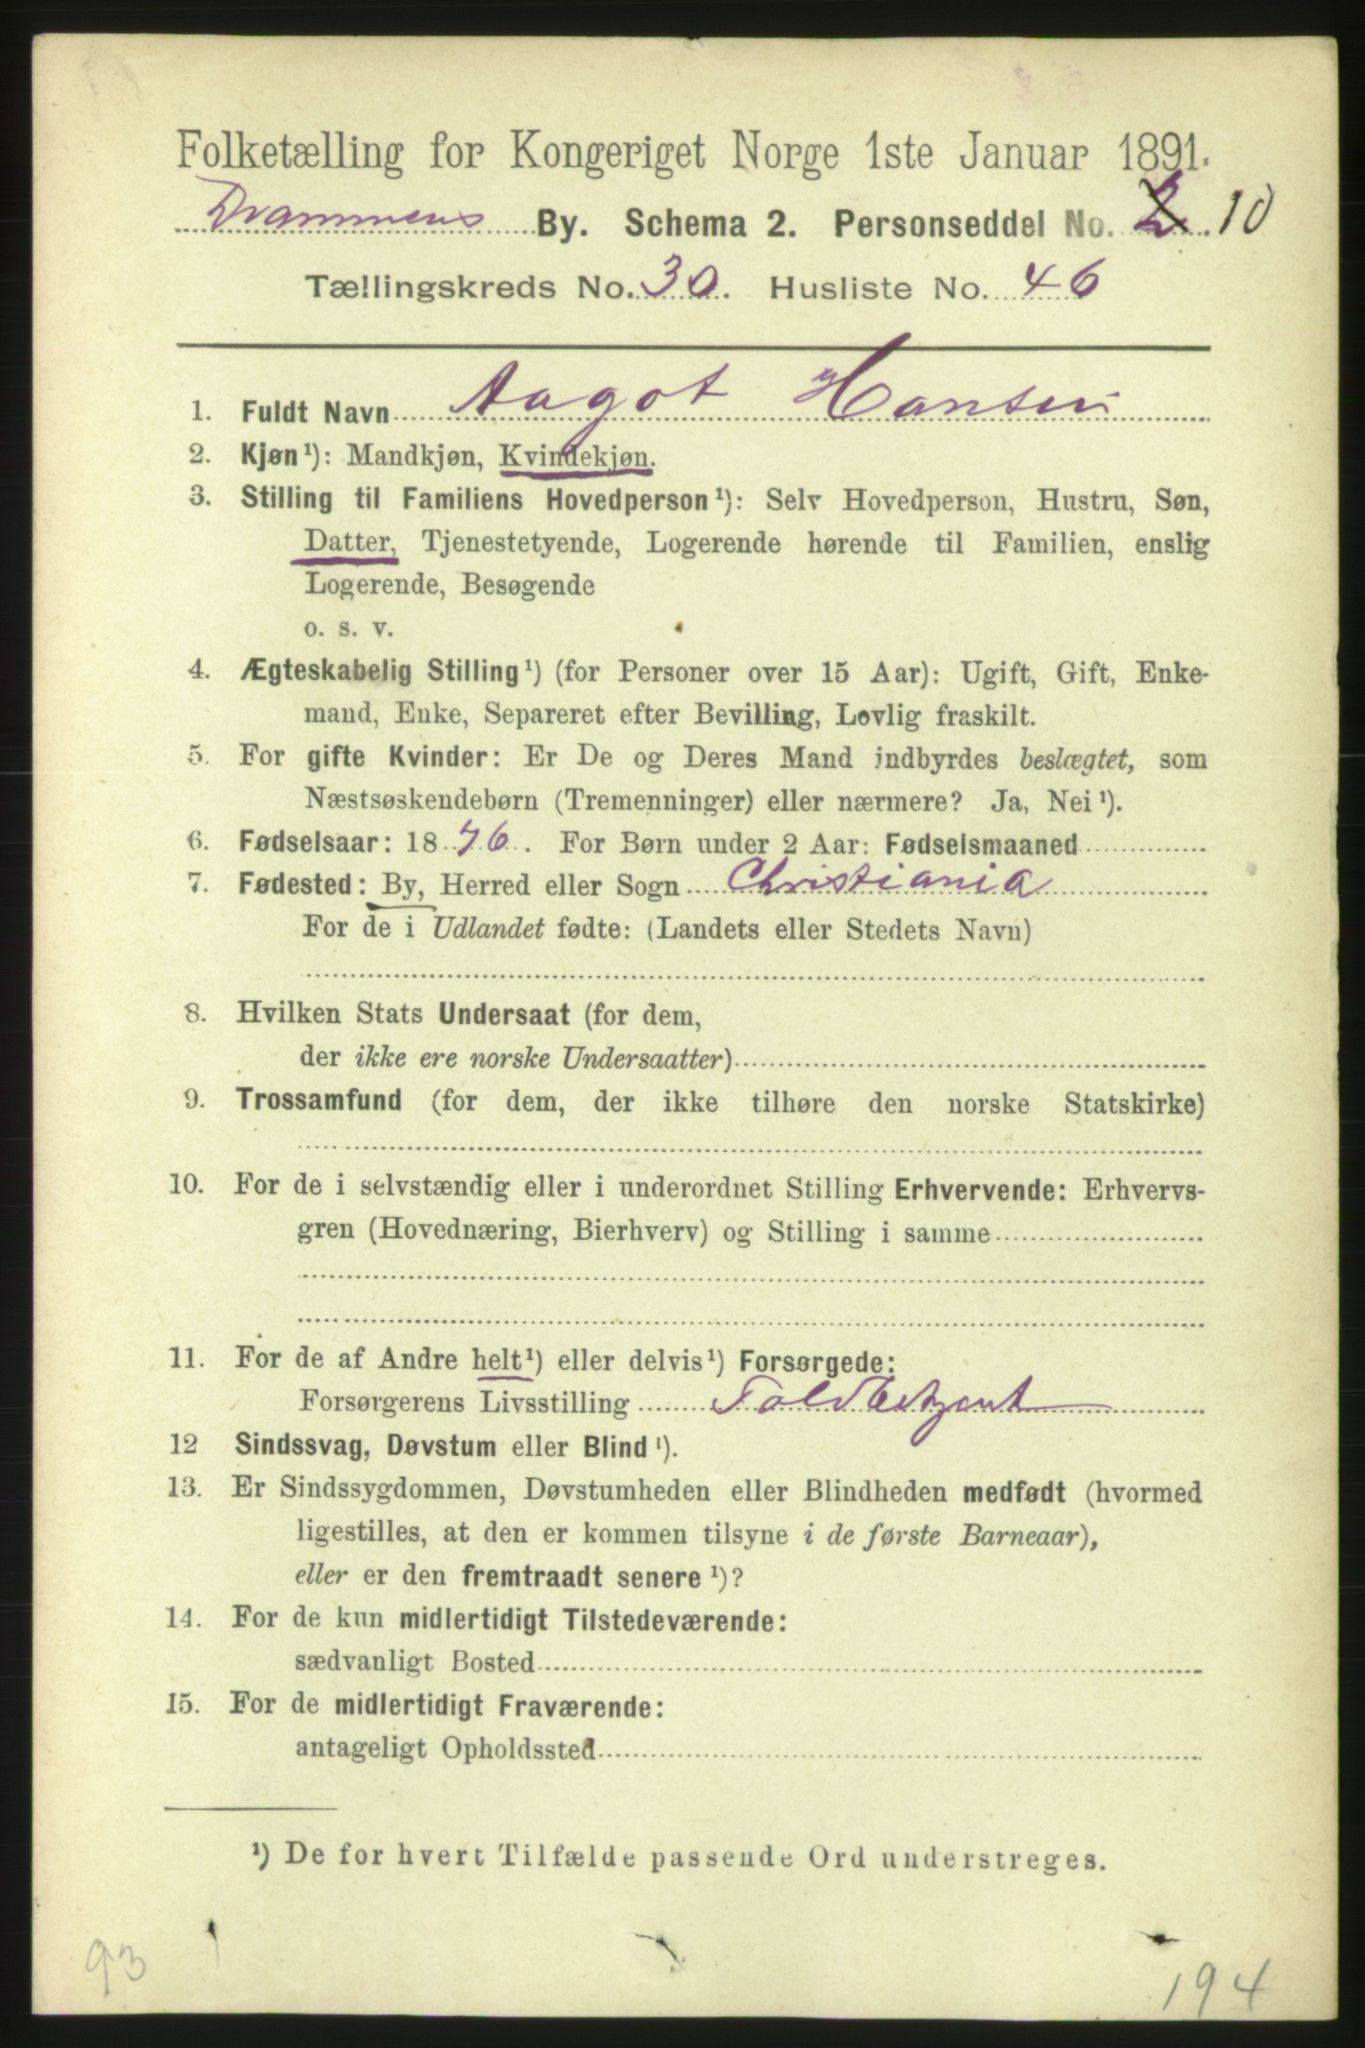 Folketælling for Kongeriget Norge 1ste Januar 1891.
Drammens By. Schema 2. Personseddel No. 2 10
Tællingskreds No. 30. Husliste No. 46
1. Fuldt Navn Aagot Hansen
2. Kjøn¹): Mandkjøn, Kvindekjøn.
3. Stilling til Familiens Hovedperson¹): Selv Hovedperson, Hustru, Søn,
Datter, Tjenestetyende, Logerende hørende til Familien, enslig
Logerende, Besøgende
o. s. v.
4. Ægteskabelig Stilling¹) (for Personer over 15 Aar): Ugift, Gift, Enke-
mand, Enke, Separeret efter Bevilling, Lovlig fraskilt.
5. For gifte Kvinder: Er De og Deres Mand indbyrdes beslægtet, som
Næstsøskendebørn (Tremenninger) eller nærmere? Ja, Nei¹).
6. Fødselsaar: 1876. For Børn under 2 Aar: Fødselsmaaned
7. Fødested: By, Herred eller Sogn Christiania
For de i Udlandet fødte: (Landets eller Stedets Navn)
8. Hvilken Stats Undersaat (for dem,
der ikke ere norske Undersaatter)
9. Trossamfund (for dem, der ikke tilhøre den norske Statskirke)
10. For de i selvstændig eller i underordnet Stilling Erhvervende: Erhvervs-
gren (Hovednæring, Bierhverv) og Stilling i samme
11. For de af Andre helt¹) eller delvis¹) Forsørgede:
Forsørgerens Livsstilling Toldbetjent
12 Sindssvag, Døvstum eller Blind¹).
13. Er Sindssygdommen, Døvstumheden eller Blindheden medfødt (hvormed
ligestilles, at den er kommen tilsyne i de første Barneaar),
eller er den fremtraadt senere¹)?
14. For de kun midlertidigt Tilstedeværende:
sædvanligt Bosted
15. For de midlertidigt Fraværende:
antageligt Opholdssted
¹) De for hvert Tilfælde passende Ord understreges.
93
194